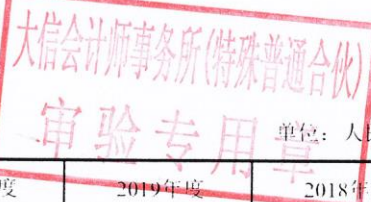 大信会计师事务所(特殊普通合伙)
审验专用章
单位：人民
度 2019年度 2018年